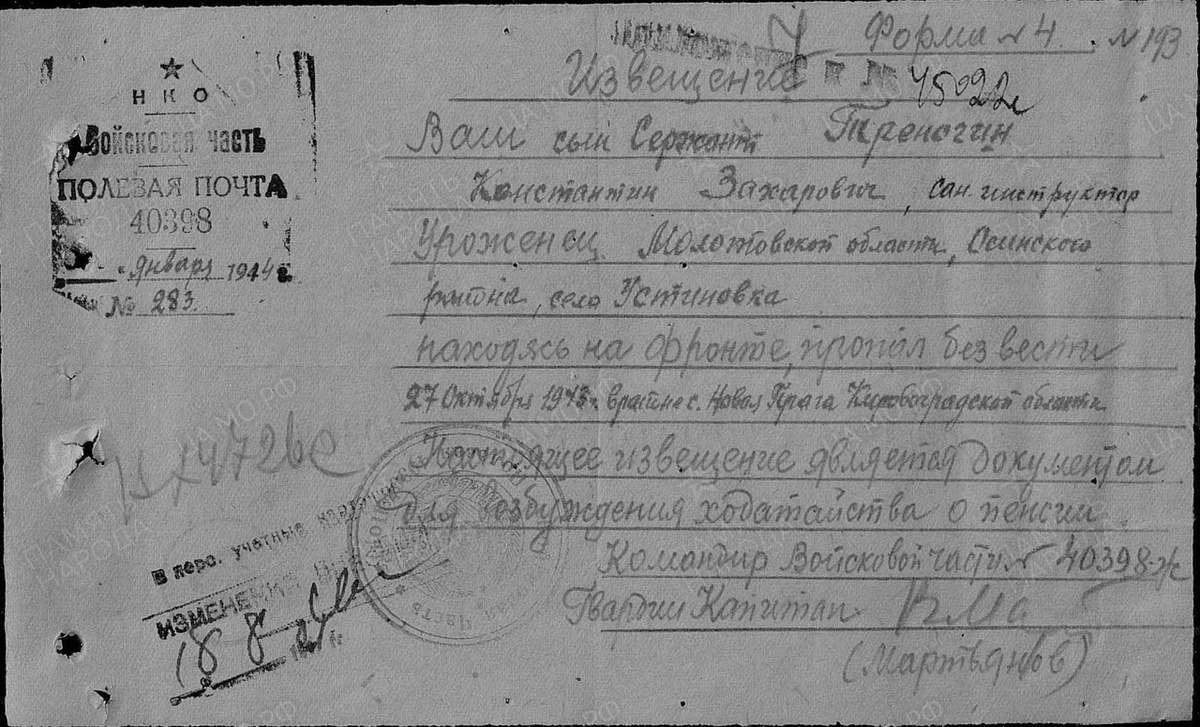 Форма №4 №193
Извещение
45022с
НКО
Войсковая часть
ПОЛЕВАЯ ПОЧТА
40398
января 1944 г.
№ 283.
Ваш сын Сержант Треногин
Константин Захарович, сан. инструктор
Уроженец Молотовской области, Осинского
района, село Устиновка
находясь на фронте, пропал без вести
27 Октября 1943 г. в районе с. Новая Прага Кировоградской области
Настоящее извещение является документом
для возбуждения ходатайства о пенсии
Командир Войсковой части № 40398-ж
Гвардии Капитан
(Мартьянов)
В перс. учетные
ИЗМЕНЕНИЯ
18 8